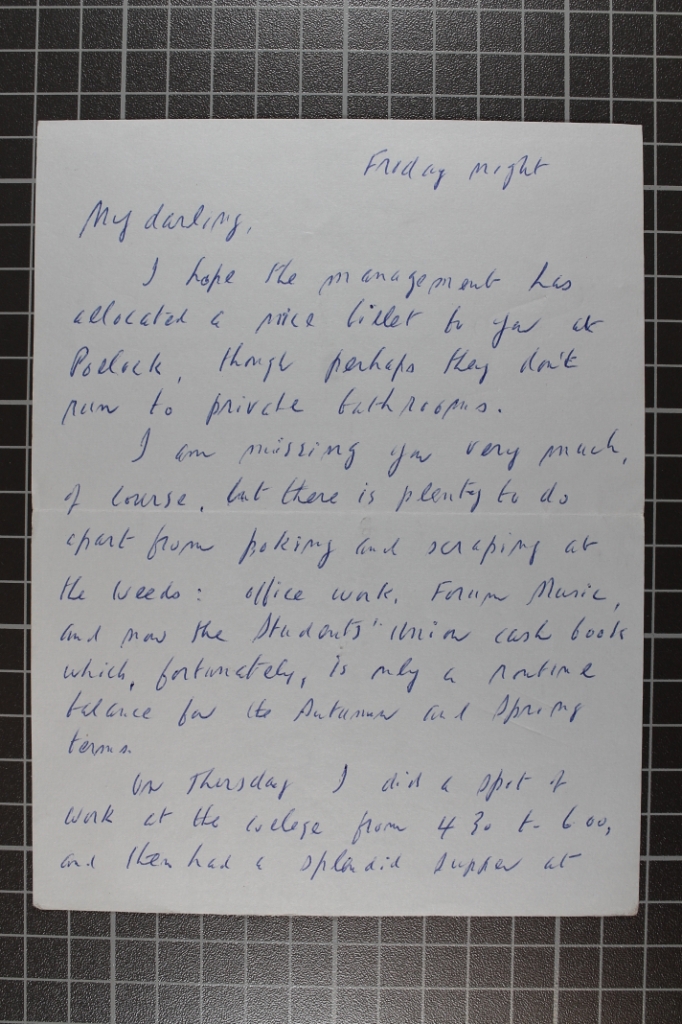 Friday night
My darling,
I hope the management has
allocated a nice billet to you at
Porlock, though perhaps they don't
run to private bathrooms.
I am missing you very much,
of course, but there is plenty to do
apart from poking and scraping at
the weeds: office work, Forum Music,
and now the Students' Union cash book
which, fortunately, is only a routine
balance for the Autumn and Spring
terms.
On Thursday I did a spot of
work at the college from 4 30 to 6 00,
and then had a splendid supper at